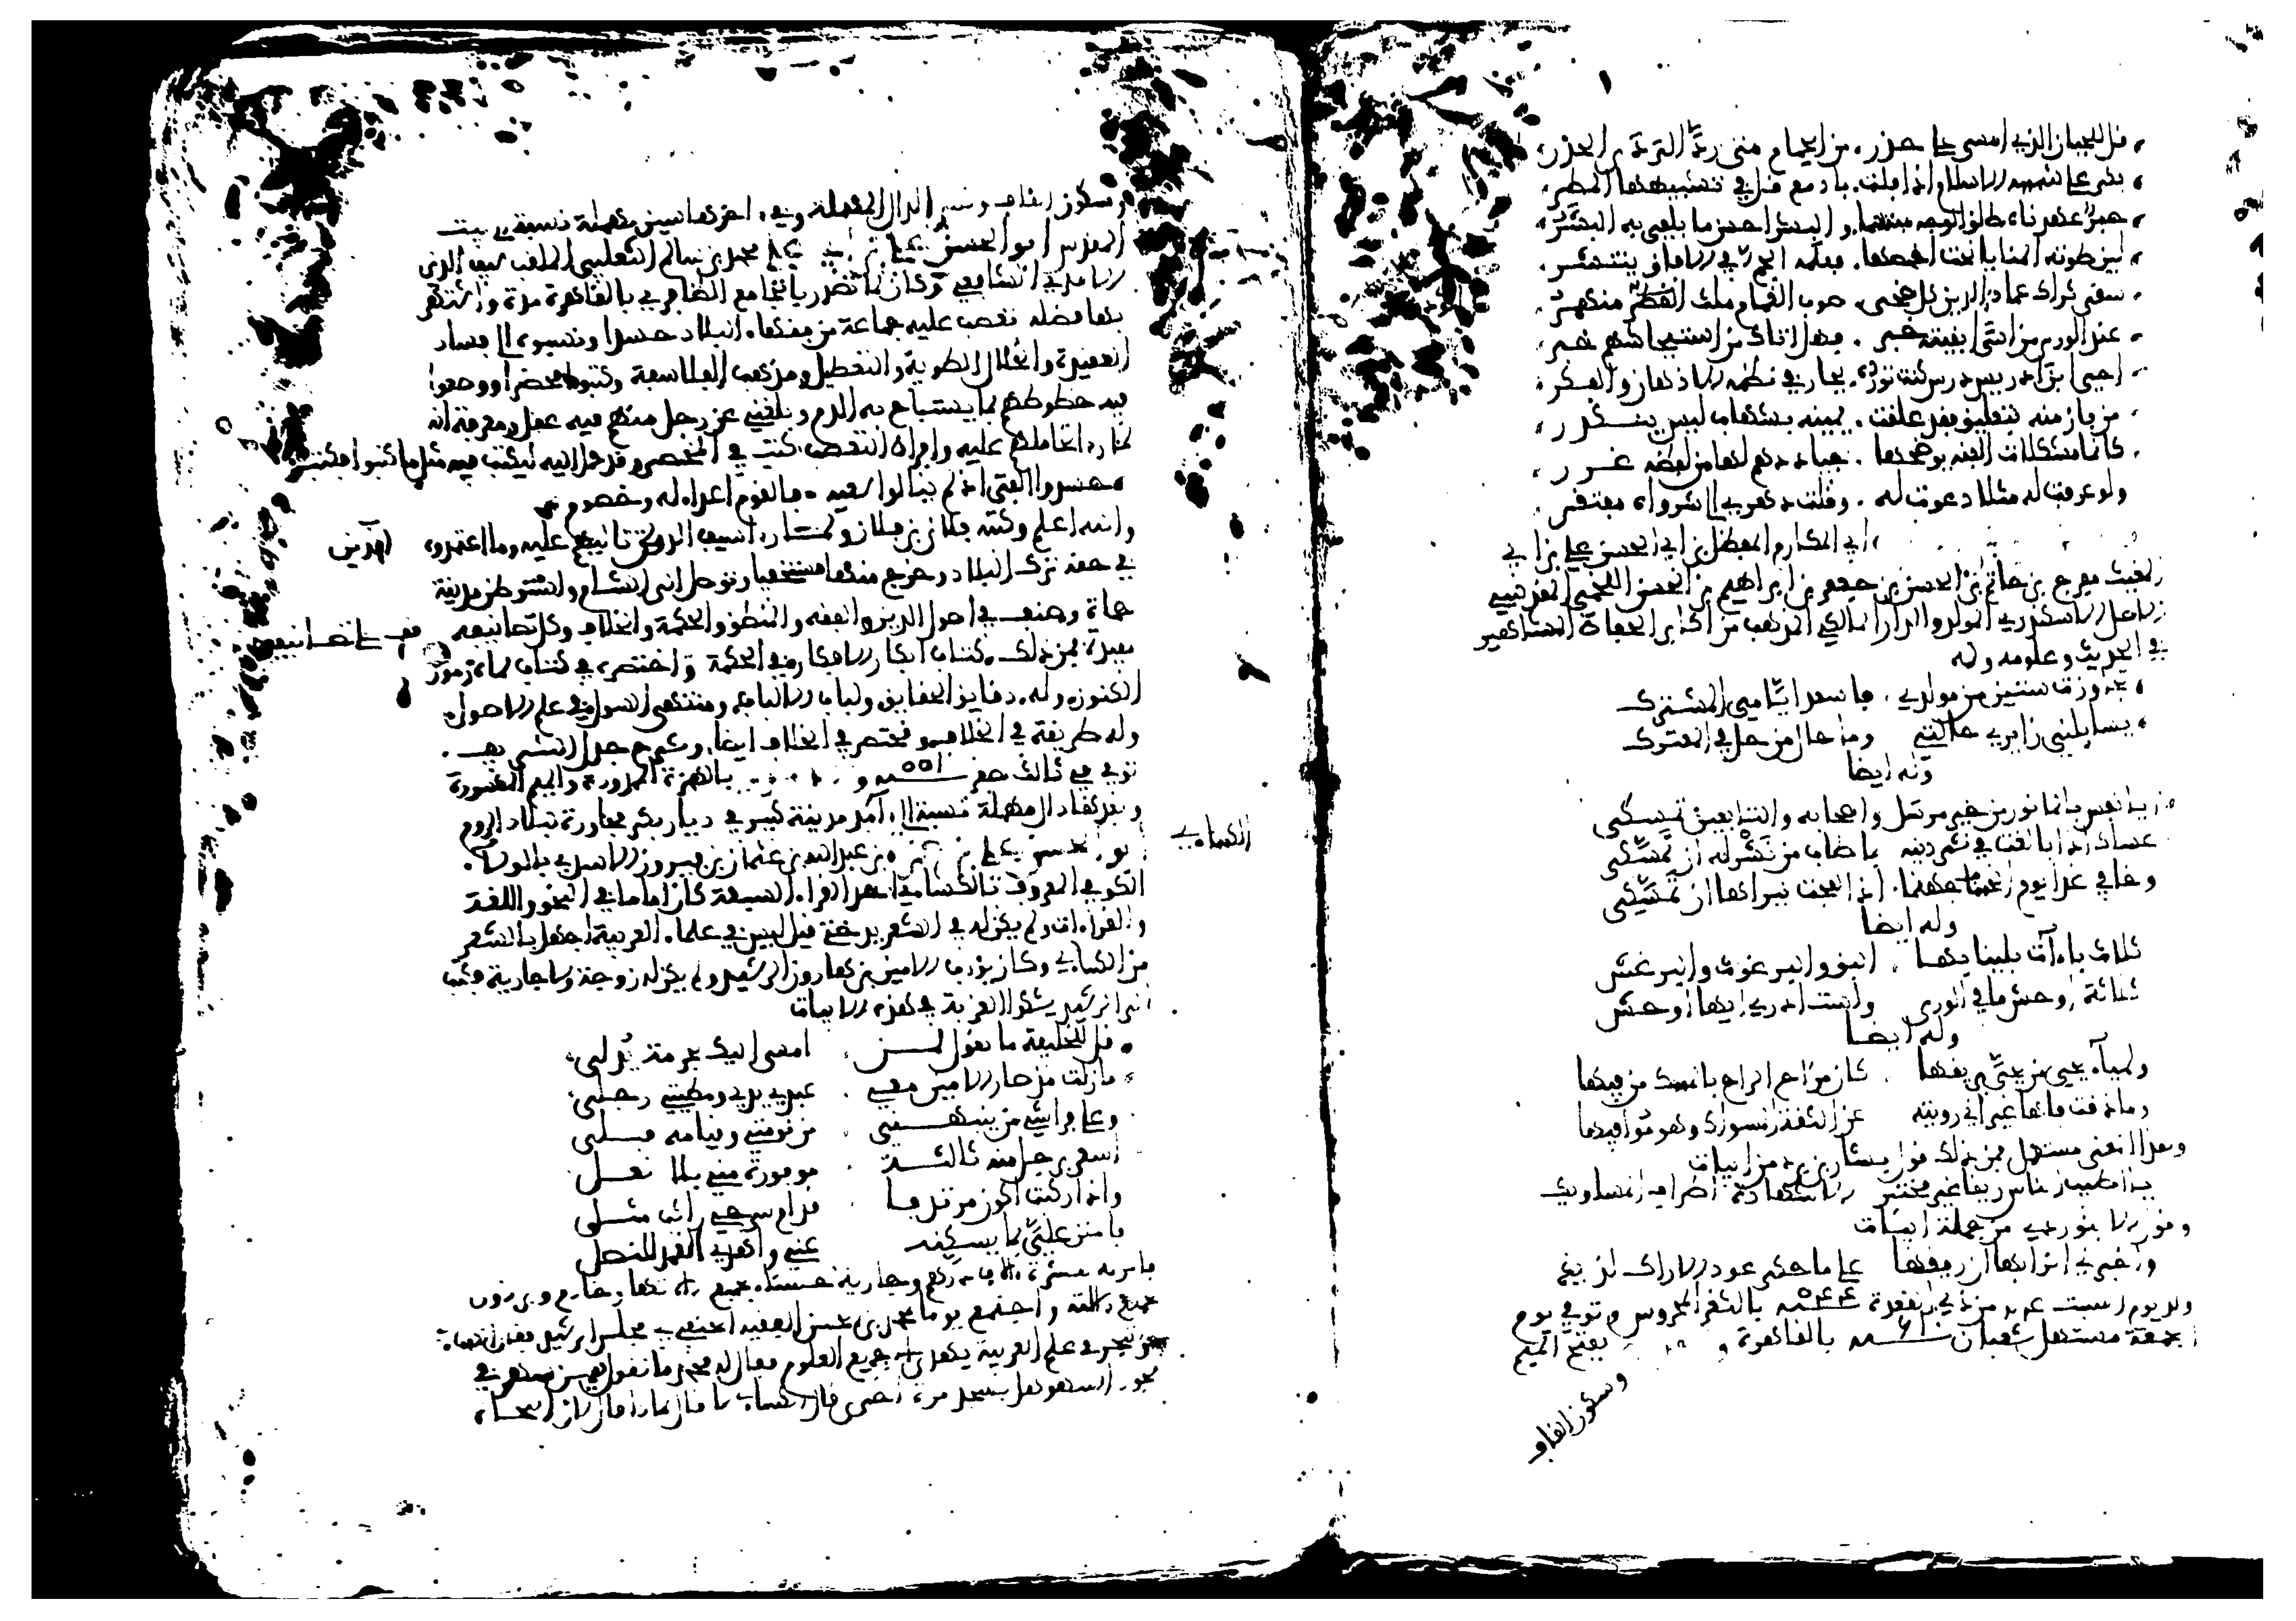 قل للجبان الذي امسى على حذر من الحمام متى رد الردى الحذر
سقى ثراك عماد الدين كل ضحى صوب الغمام ملث القطر منهمر
عند الورى من اسى ابقيته خبر فهل اتاك من استيحاشهم خبر
احيى ابن ادريس درس كنت تورده يحار في نظمه الاذهان والفكر
من فاز منه بتعليق فقد علقت يمينه بشهاب ليس ينكدر
كانما مشكلات الفقه يوضحها جباه دهم لها من لفظه غرر
ولو عرفت له مثلا دعوت له وقلت دهري الى شرواه مفتقر
ابي المكارم المفضل بن ابي الحسن علي بن ابي
الغيث مفرج بن حاتم بن الحسن بن جعفر بن ابراهيم بن الحسن اللخمي المقدسي
الاصل الاسكندري المولد والدار المالكي المذهب من اكابر الحفاظ المشاهير
في الحديث وعلومه وله
تجاوزت ستين من مولدي فاسعد ايامي المشترك
يسايلني زايري حالتي وما حال من حل في المعترك
وله ايضا
ايا نفس بالماثور من خير مرسل واصحابه والتابعين تمسكي
عساك اذا بالغت في نشر دينه بما طاب من نشر له ان تمسكي
وخافي غدا يوم الحساب جهنما اذا لفحت نيرانها ان تمسكي
وله ايضا
ثلاث باءات بلينا بها البق والبرغوث والبرغش
ثلاثة اوحش ما في الورى ولست ادري ايها اوحش
وله ايضا
ولمياء تحيي من تحيي بريقها كان مزاج الراح بالمسك من فيها
وما ذقت فاها غير اني رويته عن الثقة المسواك وهو موافيها
وهذا المعنى مستعمل فمن ذلك قول بشار بن برد من ابيات
يا اطيب الناس ريقا غير مختبر الا شهادة اطراف المساويك
وقول الابيوردي من جملة ابيات
واخبرني اترابها ان ريقها على ما حكى عود الاراك لذيذ
ولد يوم السبت من ذي القعدة سنة ٥٤٤ بالثغر المحروس وتوفي يوم
الجمعة مستهل شعبان سنة بالقاهرة و بفتح الميم
وسكون القاف
وسكون القاف وكسر الدال المهملة وفي اخرها سين مهملة نسبة الى بيت
المقدس ابو الحسن علي بن ابي علي محمد بن سالم الثعلبي الملقب سيف الدين
الامدي الشافعي وكان لما تصدر بالجامع الظافري بالقاهرة مدة واشتهر
بها فضله تعصب عليه جماعة من فقهاء البلاد حسدا ونسبوه الى فساد
العقيدة وانحلال الطوية والتعطيل ومذهب الفلاسفة وكتبوا محضرا ووضعوا
فيه خطوطهم بما يستباح به الدم وبلغني عن رجل منهم فيه عقل ومعرفة انه
لما راى تحاملهم عليه وافراط التعصب كتب في المحضر وقد حمل اليه ليكتب فيه مثل ما كتبوا فكتب
حسدوا الفتى اذ لم ينالوا سعيه فالقوم اعداء له وخصوم
والله اعلم وكتبه فلان بن فلان ولما راى سيف الدين تالبهم عليه وما اعتمدوه
الآمدي
في حقه ترك البلاد وخرج منها مستخفيا وتوصل الى الشام واستوطن مدينة
حماة وصنف في اصول الدين والفقه والمنطق والحكمة والخلاف وكل تصانيفه
قف على تصانيفه
مفيدة فمن ذلك كتاب ابكار الافكار وفي الحكمة واختصره في كتاب سماه رموز
الكنوز وله دقايق الحقايق ولباب الالباب ومنتهى السول في علم الاصول
وله طريقة في الخلاف ومختصر في الخلاف ايضا وشرح جدل الشريف
توفي في ثالث صفر سنة و بالهمزة الممدودة والميم المكسورة
وبعدها دال مهملة نسبة الى آمد مدينة كبيرة في ديار بكر مجاورة لبلاد الروم
الكساءي
ابو الحسن علي بن حمزة بن عبد الله بن عثمان بن فيروز الاسدي بالولاء
الكوفي المعروف بالكسائي احد القراء السبعة كان اماما في النحو واللغة
والقراءات ولم يكن له في الشعر يد حتى قيل ليس في علماء العربية اجهل بالشعر
من الكسائي وكان يؤدب الامين بن هارون الرشيد ولم يكن له زوجة ولا جارية فكتب
الى الرشيد يشكو العزبة في هذه الابيات
قل للخليفة ما تقول لمن امسى اليك بحرمة يدلي
ما زلت مذ صار الامين معي عبدي يدي ومطيتي رجلي
وعلى فراشي من ينبهني من نومتي وقيامه قبلي
اسعى برجل منه ثالثة موفورة مني بلا نعل
واذا ركبت اكون مرتدفا قدام سرجي راكب مثلي
فامنن علي بما يسكنه عني واهدي الغمد للنصل
فامر له بعشرة الاف درهم وجارية حسناء بجميع وخادم وبرذون
بجميع الته واجتمع يوما محمد بن الحسن الفقيه الحنفي في مجلس الرشيد فقال الكساءي
من تبحر في علم العربية يهدى الى جميع العلوم فقال له محمد ما تقول فيمن سهى في
سجود السهو هل يسجد مرة اخرى قال الكساءي لا قال لماذا قال لان النحاة